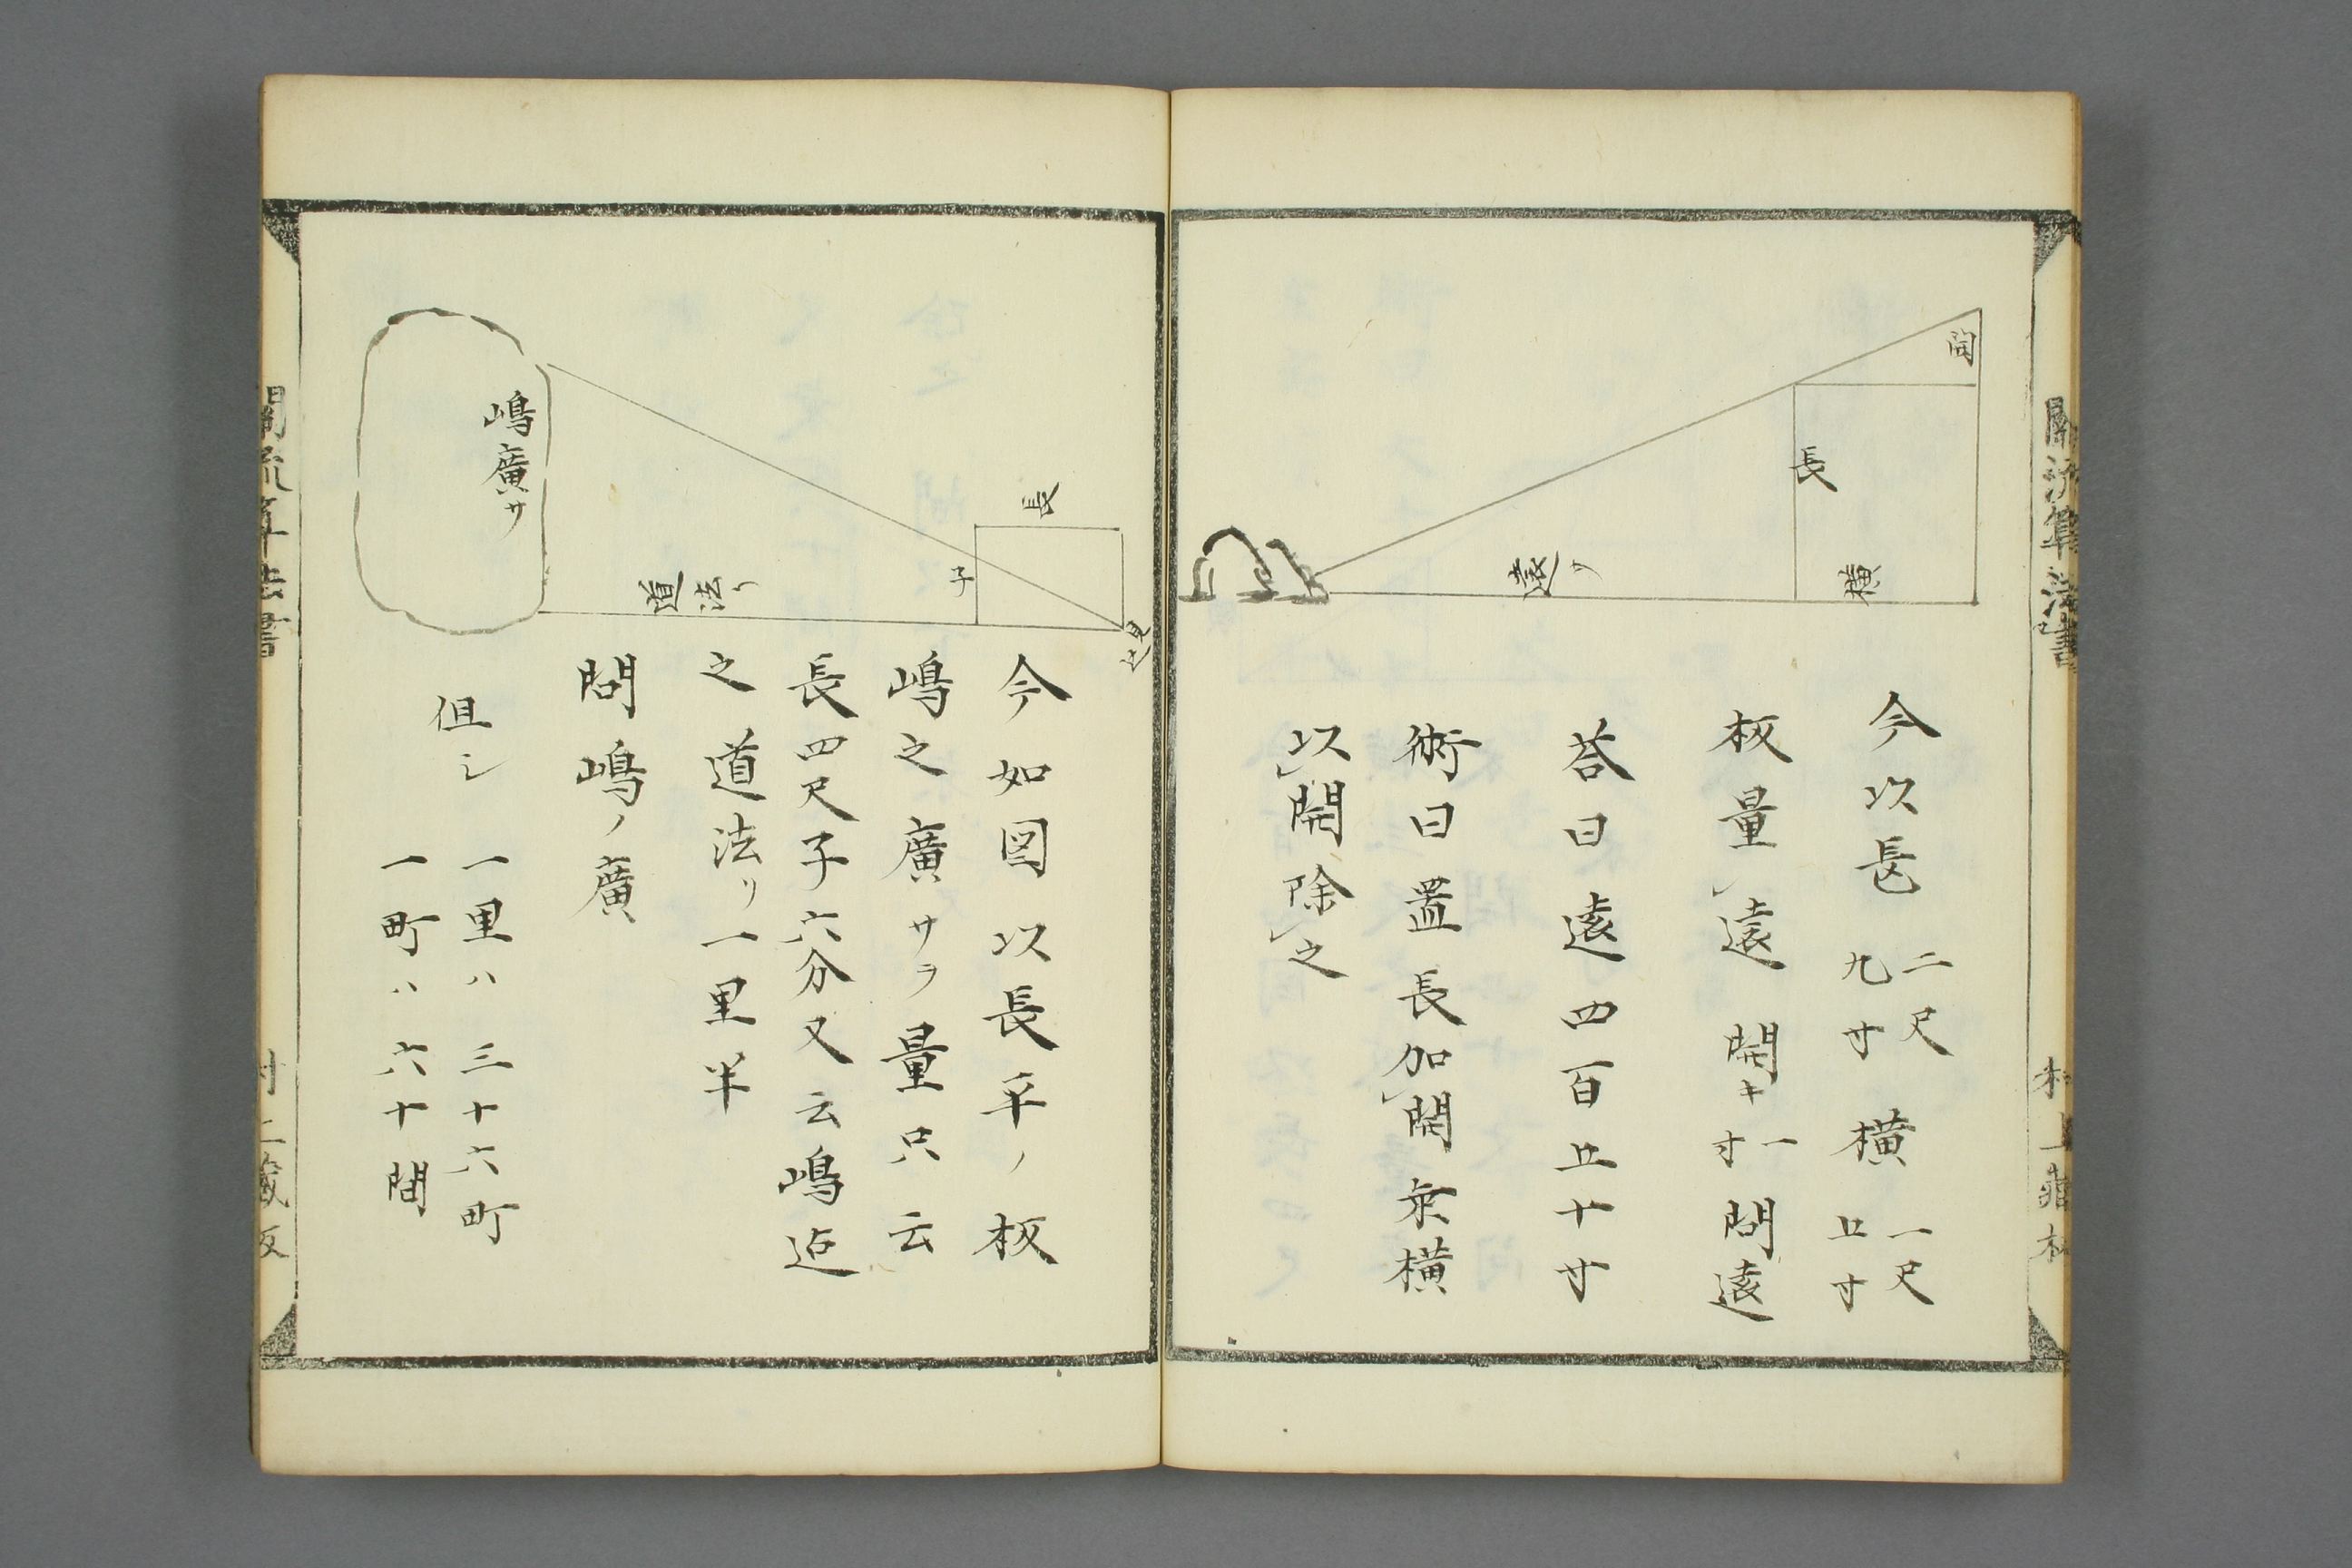 開
長
横
遠リ
今以長 二尺九寸 横 一尺五寸
板量遠 開キ一寸 問遠
荅曰遠四百五十寸
術曰置長加開乗横
以開除之
関流算法書
村上蔵板
長
子
見込
道法リ
嶋廣サ
今如図以長平ノ板
嶋之廣サヲ量只云
長四尺子六分又云嶋迠
之道法リ一里半
問嶋ノ廣
但シ 一里ハ三十六町
一町ハ六十間
関流算法書
村上蔵板